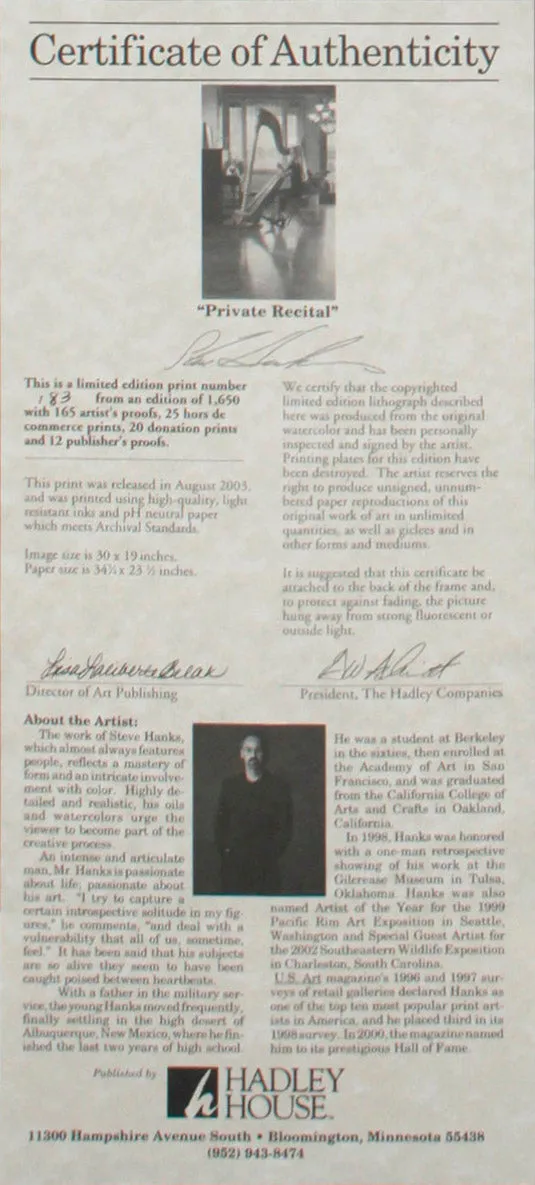 Certificate of Authenticity
"Private Recital"
This is a limited edition print number
183 from an edition of 1,650
with 165 artist's proofs, 25 hors de
commerce prints, 20 donation prints
and 12 publisher's proofs.
This print was released in August 2003,
and was printed using high-quality, light
resistant inks and pH neutral paper
which meets Archival Standards.
Image size is 30 x 19 inches.
Paper size is 34¾ x 23 ½ inches.
We certify that the copyrighted
limited edition lithograph described
here was produced from the original
watercolor and has been personally
inspected and signed by the artist.
Printing plates for this edition have
been destroyed. The artist reserves the
right to produce unsigned, unnum-
bered paper reproductions of this
original work of art in unlimited
quantities, as well as giclees and in
other forms and mediums.
It is suggested that this certificate be
attached to the back of the frame and,
to protect against fading, the picture
hung away from strong fluorescent or
outside light.
Director of Art Publishing
President, The Hadley Companies
About the Artist:
The work of Steve Hanks,
which almost always features
people, reflects a mastery of
form and an intricate involve-
ment with color. Highly de-
tailed and realistic, his oils
and watercolors urge the
viewer to become part of the
creative process.
An intense and articulate
man, Mr. Hanks is passionate
about life, passionate about
his art. "I try to capture a
certain introspective solitude in my fig-
ures," he comments, "and deal with a
vulnerability that all of us, sometime,
feel." It has been said that his subjects
are so alive they seem to have been
caught poised between heartbeats.
With a father in the military ser-
vice, the young Hanks moved frequently,
finally settling in the high desert of
Albuquerque, New Mexico, where he fin-
ished the last two years of high school.
He was a student at Berkeley
in the sixties, then enrolled at
the Academy of Art in San
Francisco, and was graduated
from the California College of
Arts and Crafts in Oakland,
California.
In 1998, Hanks was honored
with a one-man retrospective
showing of his work at the
Gilcrease Museum in Tulsa,
Oklahoma. Hanks was also
named Artist of the Year for the 1999
Pacific Rim Art Exposition in Seattle,
Washington and Special Guest Artist for
the 2002 Southeastern Wildlife Exposition
in Charleston, South Carolina.
U.S. Art magazine's 1996 and 1997 sur-
veys of retail galleries declared Hanks as
one of the top ten most popular print art-
ists in America, and he placed third in its
1998 survey. In 2000, the magazine named
him to its prestigious Hall of Fame.
Published by
h HADLEY
HOUSE
11300 Hampshire Avenue South • Bloomington, Minnesota 55438
(952) 943-8474